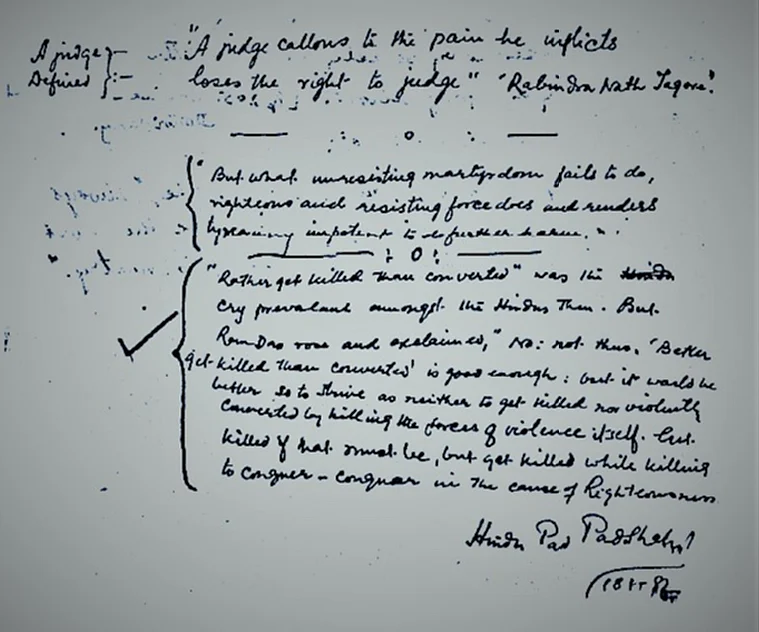 A judge :- "A judge callous to the pain he inflicts
Defined :- loses the right to judge" "Rabindra Nath Tagore".
"But what unresisting martyrdom fails to do,
righteous and resisting force does and renders
tyranny impotent to do further harm."
"Rather get killed than converted" was the Hindu
cry prevalant amongst the Hindus then. But
Ram Das rose and exclaimed, "No: not thus. 'Better
get killed than converted' is good enough: but it would be
better so to strive as neither to get killed nor violently
converted by killing the forces of violence itself. Get
killed if that must be, but get killed while killing
to conquer - conquer in the cause of Righteousness
Hindu Pad Padshahi